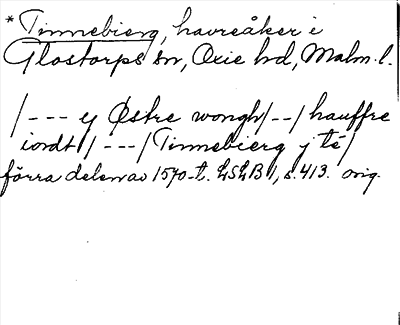 *Tinnebierg, havreåker i
Glostorps sn, Oxie hd, Malm. l.
/--- y Østre wongh/--/hauffre
iordt/---/Tinnebierg y té/
förra delen av 1570-t. LSLB 1, s. 413. orig.